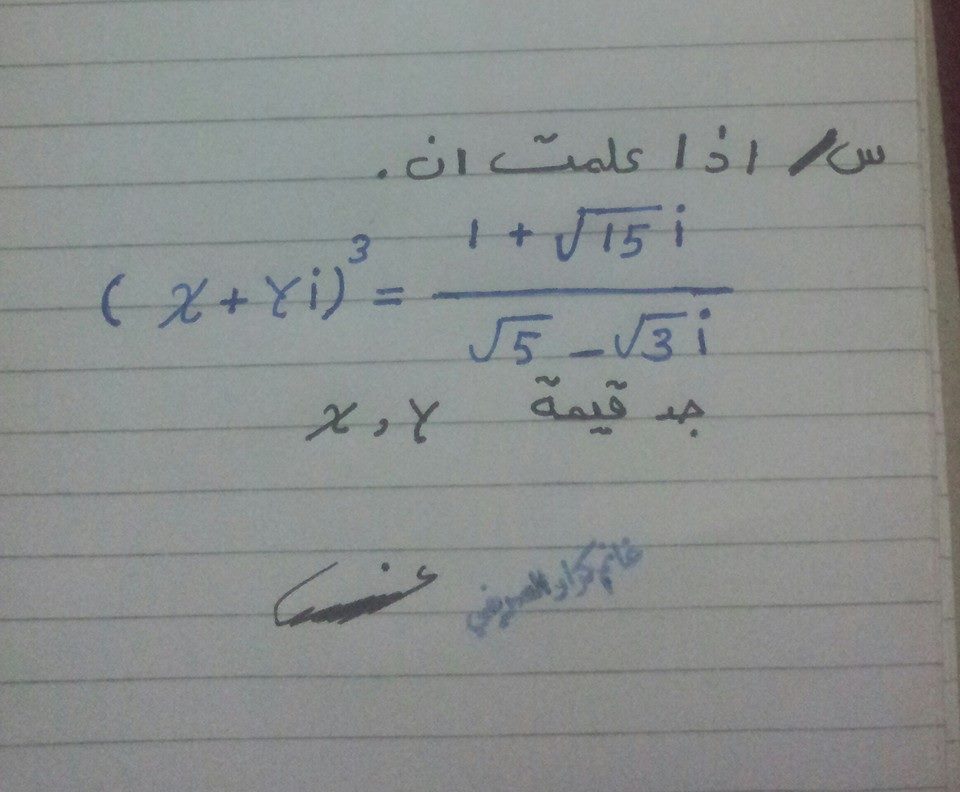 س/ اذا علمت ان.
(x + yi)³ = (1 + √15 i) / (√5 - √3 i)
جد قيمة x , y